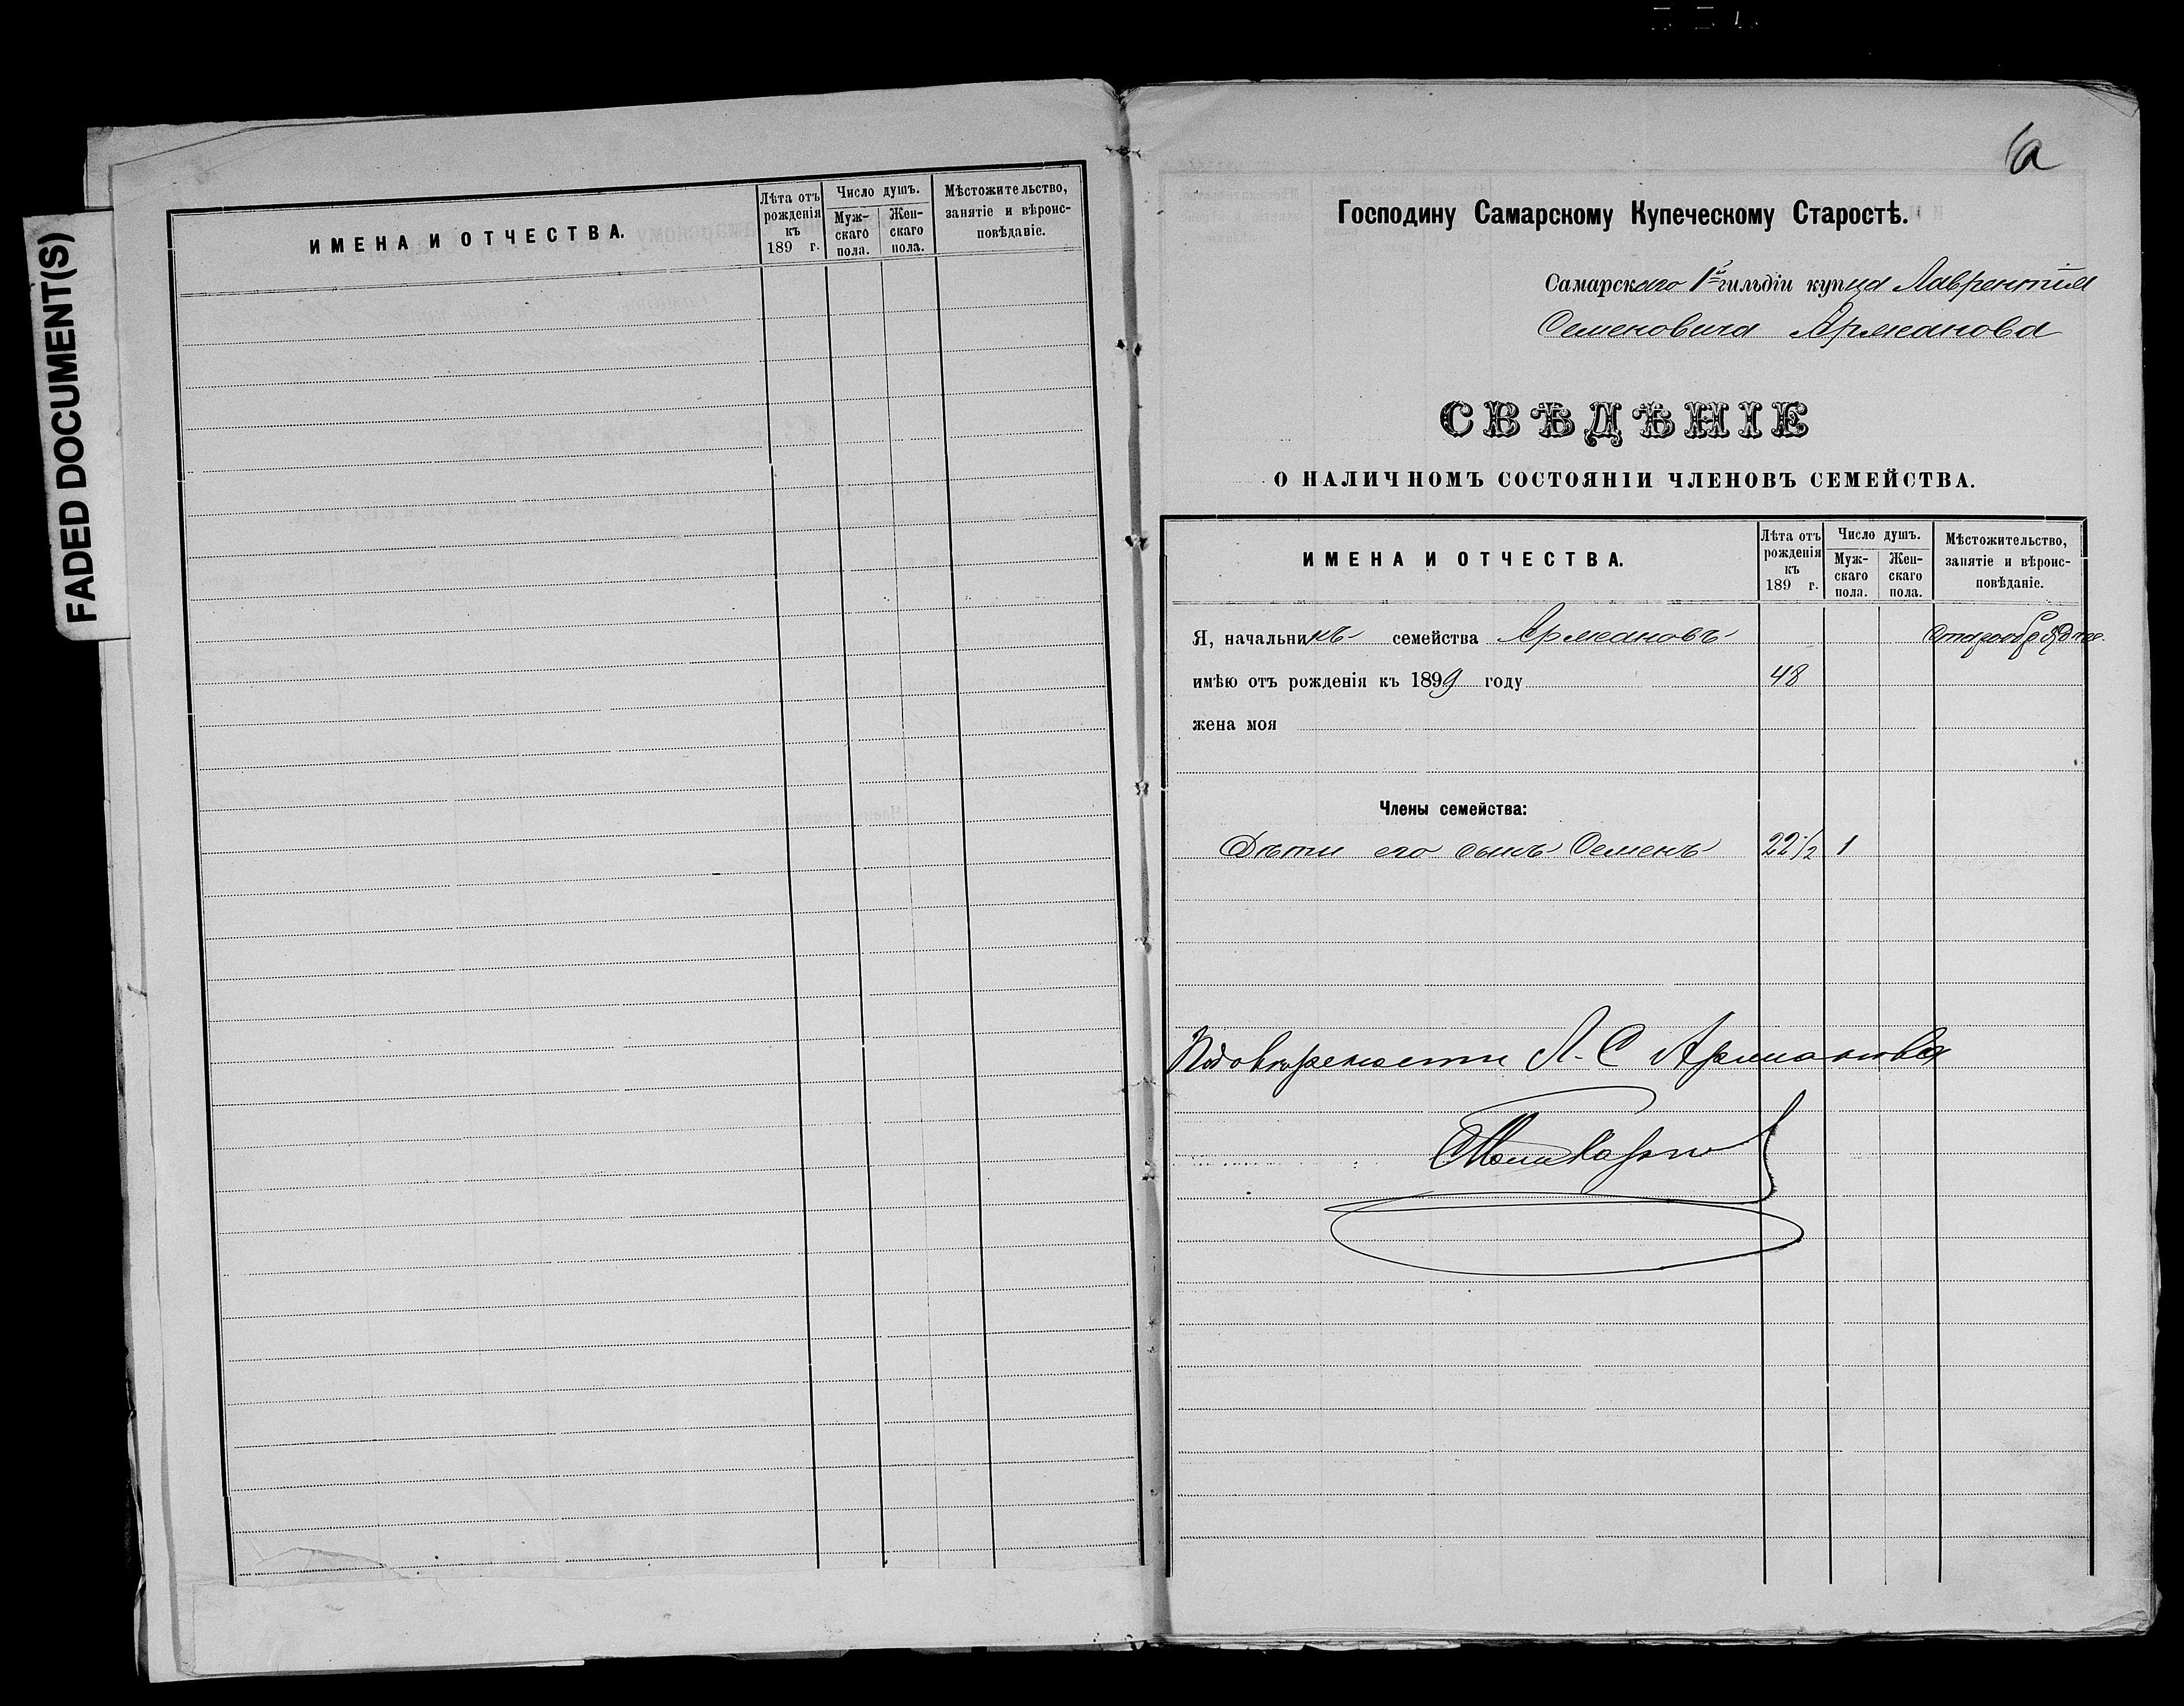 FADED DOCUMENT(S)
ИМЕНА И ОТЧЕСТВА.
Лѣта отъ рожденія къ 189 г.
Число душъ.
Мужскаго пола.
Женскаго пола.
Мѣстожительство, занятіе и вѣроисповѣданіе.
Господину Самарскому Купеческому Старостѣ.
Самарскаго 1й гильдіи купца Лаврентія
Семеновича Аржанова
СВѢДѢНІЕ
О НАЛИЧНОМЪ СОСТОЯНІИ ЧЛЕНОВЪ СЕМЕЙСТВА.
ИМЕНА И ОТЧЕСТВА.
Лѣта отъ рожденія къ 189 г.
Число душъ.
Мужскаго пола.
Женскаго пола.
Мѣстожительство, занятіе и вѣроисповѣданіе.
Я, начальникъ семейства Аржановъ
имѣю отъ рожденія къ 1899 году 48
жена моя
Члены семейства:
Дѣти его сынъ Семенъ 22 1/2 1
По довѣренности Л. С Аржанова